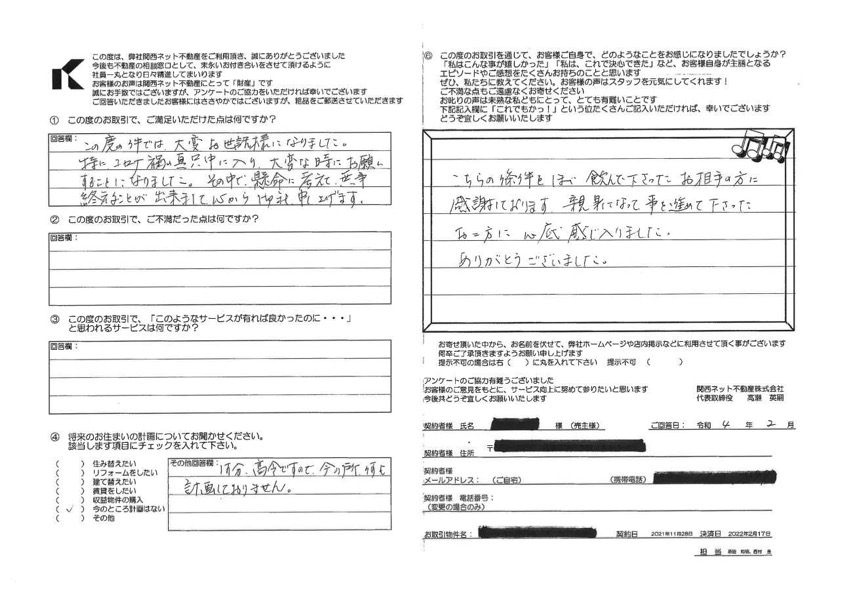 この度は、弊社関西ネット不動産をご利用頂き、誠にありがとうございました
今後も不動産の相談窓口として、末永いお付き合いをさせて頂けるように
社員一丸となり日々精進してまいります
お客様のお声は関西ネット不動産にとって「財産」です
誠にお手数ではございますが、アンケートのご協力をいただければ幸いでございます
ご回答いただきましたお客様にはささやかではございますが、粗品をご郵送させていただきます
① この度のお取引で、ご満足いただけた点は何ですか？
回答欄：
この度の件では 大変 お世話様になりました。
特に コロナ禍の真只中に入り、大変な時に お願い
することに なりました。その中で 懸命に 考えて、無事
終えることが 出来まして 心から 御礼 申し上げます。
② この度のお取引で、ご不満だった点は何ですか？
回答欄：
③ この度のお取引で、「このようなサービスが有れば良かったのに・・・」
と思われるサービスは何ですか？
回答欄：
④ 将来のお住まいの計画についてお聞かせください。
該当します項目にチェックを入れて下さい。
（　） 住み替えたい
（　） リフォームをしたい
（　） 建て替えたい
（　） 賃貸をしたい
（　） 収益物件の購入
（✓） 今のところ計画はない
（　） その他
その他回答欄：
十分、高令ですので、今の所 何も
計画しておりません。
⑥ この度のお取引を通じて、お客様ご自身で、どのようなことをお感じになりましたでしょうか？
「私はこんな事が嬉しかった」「私は、これで決心できた」など、お客様自身が主語となる
エピソードやご感想をたくさんお持ちのことと思います
ぜひ、私たちに教えてください。お客様の声はスタッフを元気にしてくれます！
ご不満な点もご遠慮なくお寄せください
お叱りの声は未熟な私どもにとって、とても有難いことです
下記記入欄に「これでもかっ！」という位たくさんご記入いただければ、幸いでございます
どうぞ宜しくお願いいたします
こちらの条件を ほぼ 飲んで下さった お相手の方に
感謝しております 親身になって 事を進めて下さった
お二方に 心底 感じ入りました。
ありがとうございました。
お寄せ頂いた中から、お名前を伏せて、弊社ホームページや店内掲示などに利用させて頂く事がございます
何卒ご了承頂きますようお願い申し上げます
提示不可の場合は右（　）に丸を入れて下さい　提示不可　（　　　）
アンケートのご協力有難うございました
お客様のご意見をもとに、サービス向上に努めて参りたいと思います
今後共どうぞ宜しくお願いいたします
関西ネット不動産株式会社
代表取締役　高瀬　英嗣
契約者様 氏名　様（売主様）　ご回答日： 令和 4 年 2 月
契約者様 住所　〒
契約者様
メールアドレス： （ご自宅）　（携帯電話）
契約者様 電話番号：
（変更の場合のみ）
お取引物件名：　契約日 2021年11月28日 決済日 2022年2月17日
担 当